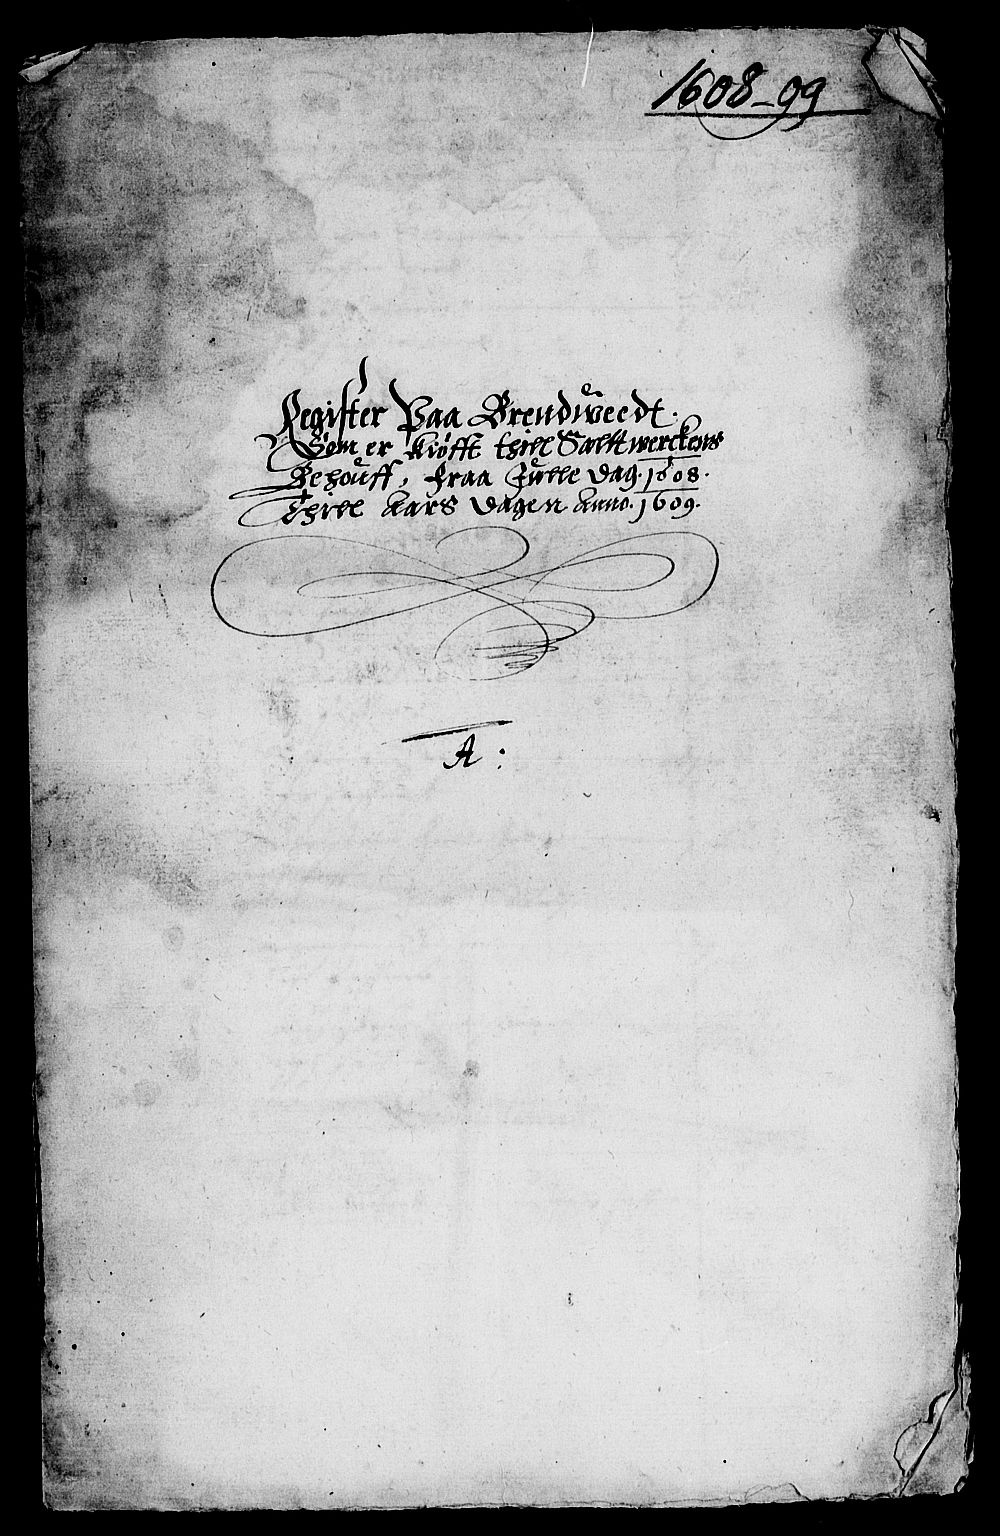 1608_09
Register Paa Brendweedt.
Som er kiøfft thill Salltwerckens
Behouff, fraa Julle Dag. 1608.
Thill Aars Dagen Anno. 1609.
A: